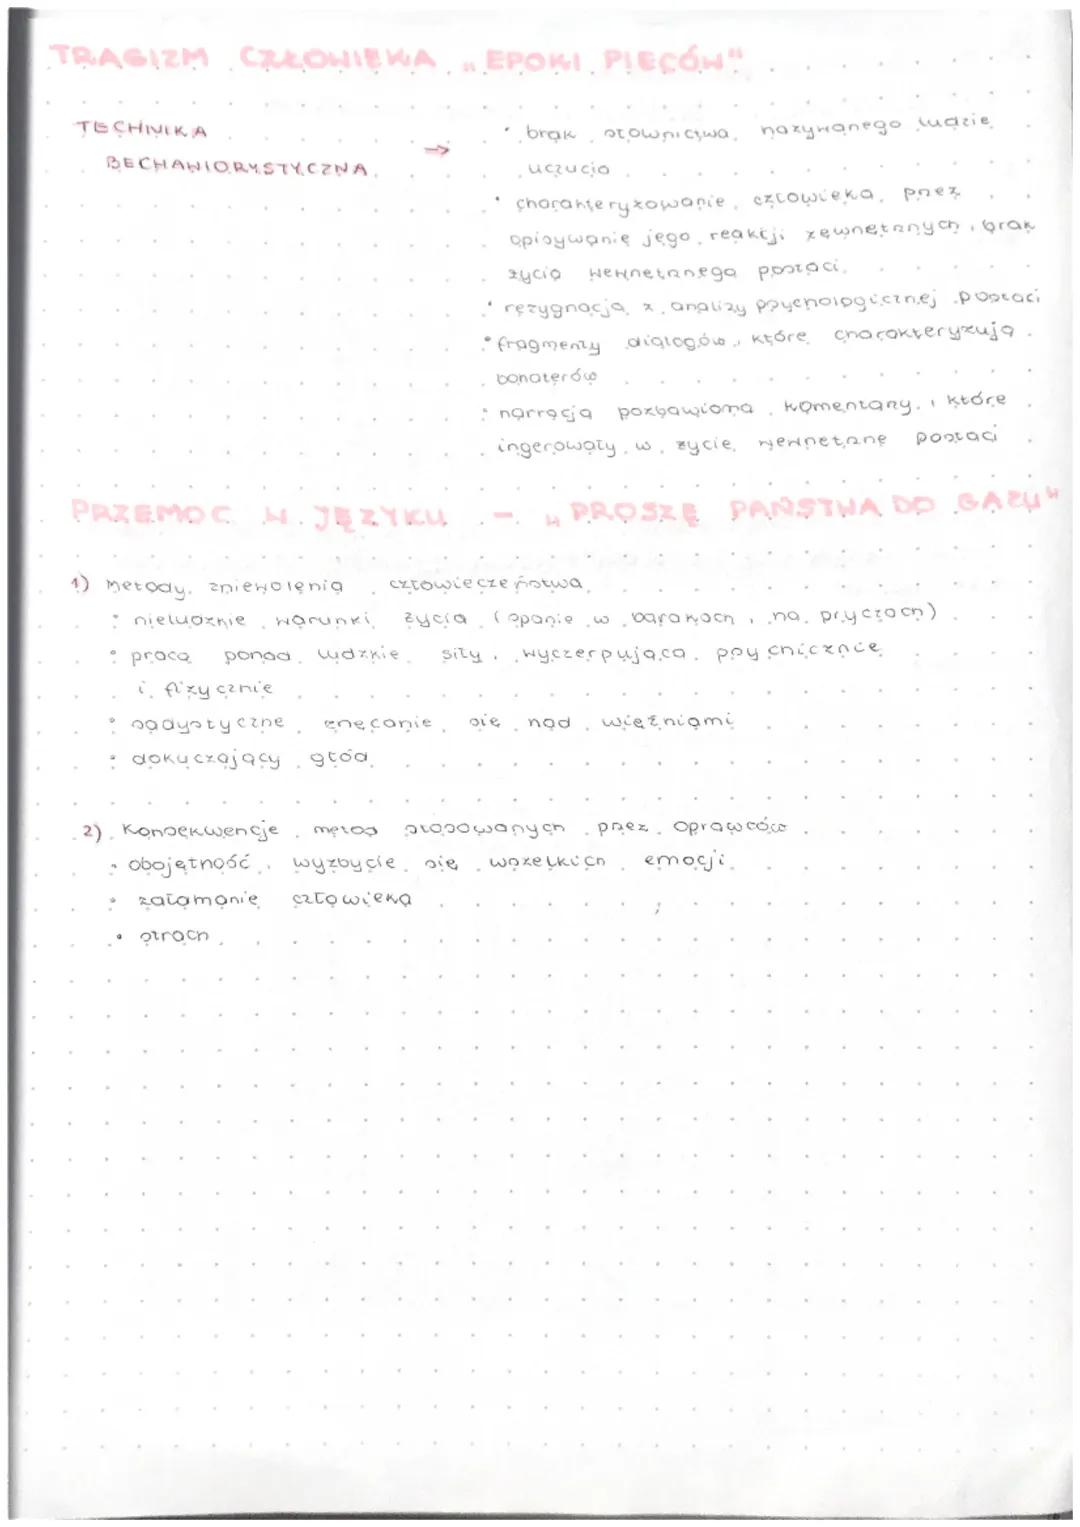 TRAGIZM CZŁOWIEKA „EPOKI PIECÓW"
TECHNIKA
BECHAWIORYSTYCZNA →
• brak słownictwa nazywanego ludzie
uczucia
• charakteryzowanie człowieka przez
opisywanie jego reakcji zewnętrznych, brak
życia wewnętrznego postaci
• rezygnacja z analizy psychologicznej postaci
• fragmenty dialogów, które charakteryzują
bohaterów
• narracja pozbawiona komentarzy, które
ingerowały w życie wewnętrzne postaci
PRZEMOC W JĘZYKU - „PROSZĘ PAŃSTWA DO GAZU"
1) Metody zniewolenia człowieczeństwa
• nieludzkie warunki życia (spanie w barakach, na pryczach)
• praca ponad ludzkie siły, wyczerpująca psychicznie
i fizycznie
• sadystyczne znęcanie się nad więźniami
• dokuczający głód
2) Konsekwencje metod stosowanych przez oprawców
• obojętność, wyzbycie się wszelkich emocji
• załamanie człowieka
• strach